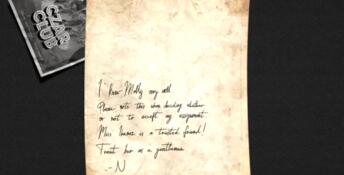 STAR
CLUB
I know Molly very well
Please note this when deciding whether
or not to accept my assignment.
Miss is a trusted friend!
Treat her as a gentleman
-N